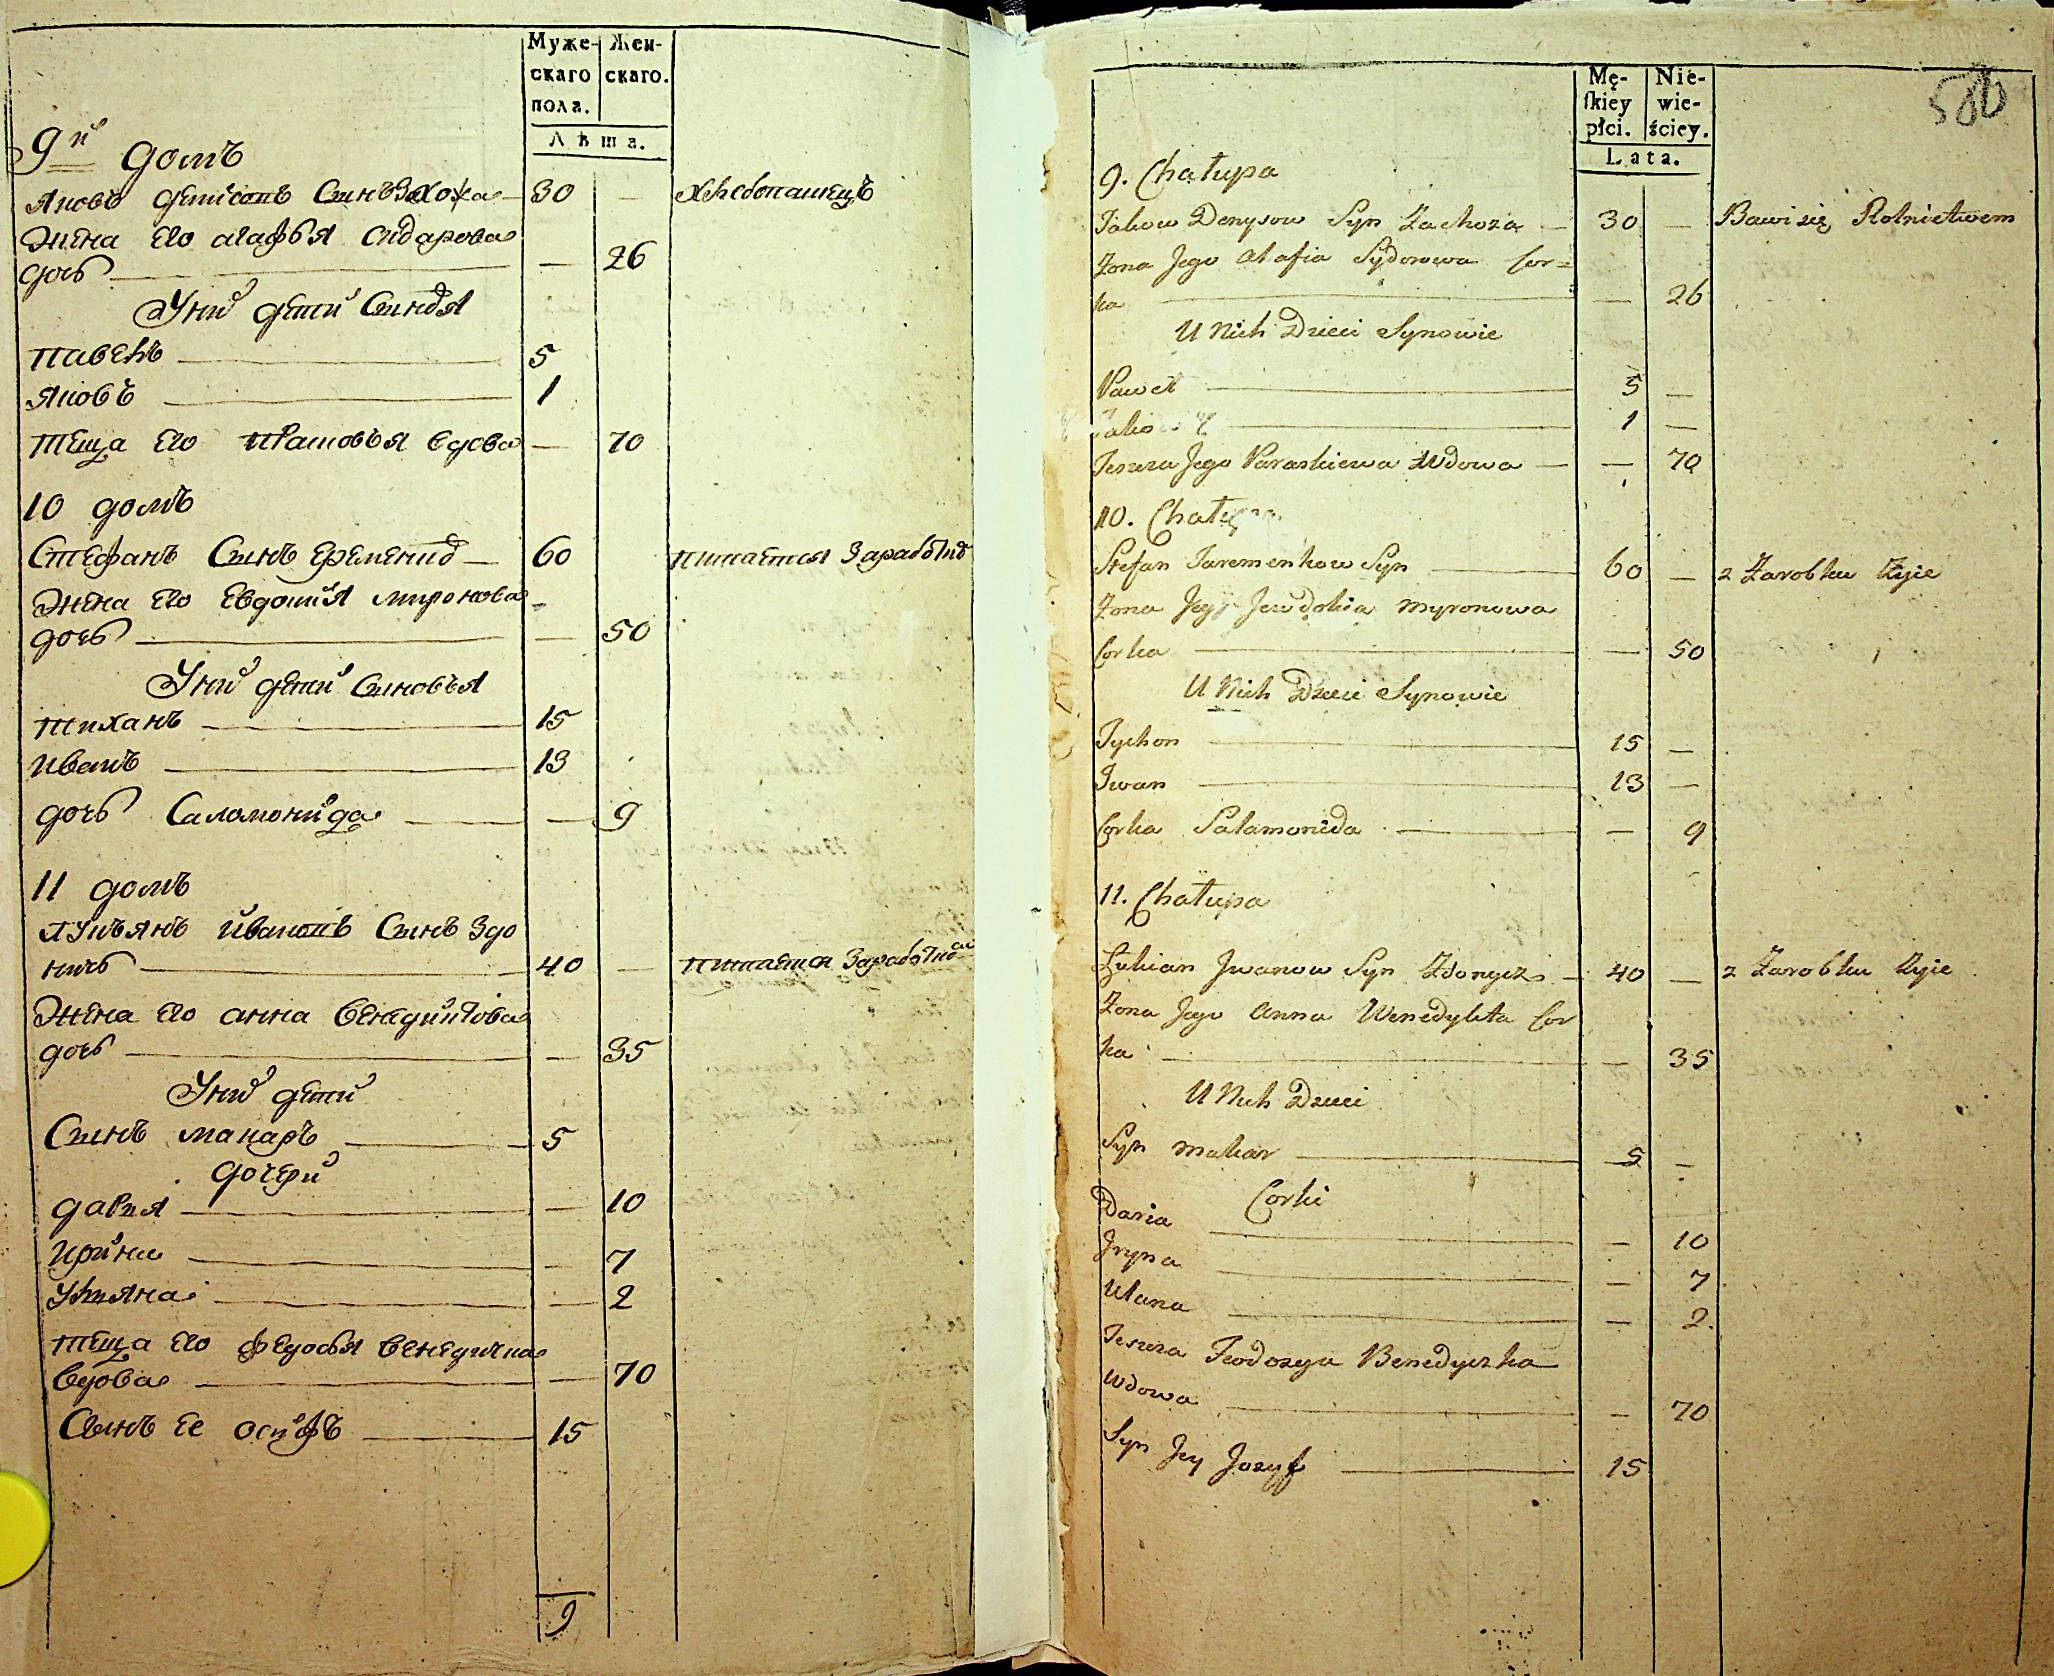 Муже-
скаго
пола.
Жен-
скаго.
Лѣта.
9й домъ
Яковъ Денисовъ Синъ Захожа — 30 — Хлебопашецъ
Жена его агафья Сидарова
дочь — — 26
Уних дети Синовя
Павелъ — 5
Яковъ — 1
теща его Прасковья вдова — 70
10 домъ
Стефанъ Синъ Еременко — 60 питается Заработком
Жена его Евдокия миронова
дочь — — 50
Уних дети Синовья
тиханъ — 15
иванъ — 13
дочь Саломонида — — 9
11 домъ
Лукъянъ ивановъ Синъ Здо
ничь — 40 — питается Заработком
Жена его анна Венедиктова
дочь — — 35
Уних дети
Синъ макаръ — 5
дочери
дария — — 10
ирина — — 7
Улияна — — 2
теща его федосья венедичка
вдова — — 70
Синъ ее осифъ — 15
9
Mę-
ſkiey
płci.
Nie-
wie-
ściey.
Lata.
586
9. Chałupa
Jakow Denysow Syn Zachoża — 30 — Bawi się Rolnictwem
Żona Jego Ahafia Sydorowa Cor=
ka — — 26
U Nich Dzieci Synowie
Paweł — 5 —
Jakow — 1 —
Teszcza Jego Paraskiewa Wdowa — — 70
10. Chałupa
Stefan Jaremenkow Syn — 60 — z Zarobku Żyie
Żona Jego Jewdokia Myronowa
Corka — — 50
U Nich Dzieci Synowie
Tychon — 15 —
Iwan — 13 —
Corka Salamonida — — 9
11. Chałupa
Łukian Jwanow Syn Zdonycz — 40 — z Zarobku Żyie
Żona Jego Anna Wenedykta Cor
ka — — 35
U Nich Dzieci
Syn Makar — 5 —
Corki
Daria — — 10
Jryna — — 7
Ulana — — 2.
Teszcza Teodozya Benedyczka
Wdowa — — 70
Syn Jey Jozyf — 15